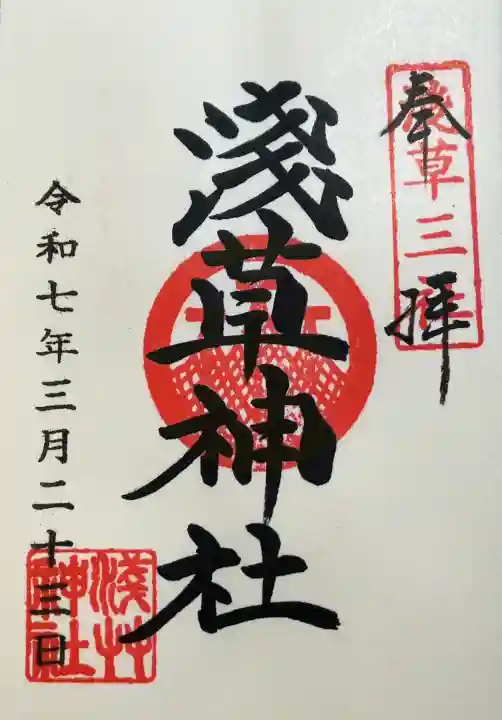 奉拝
淺草三社
淺草神社
令和七年三月二十三日
淺艸
神社